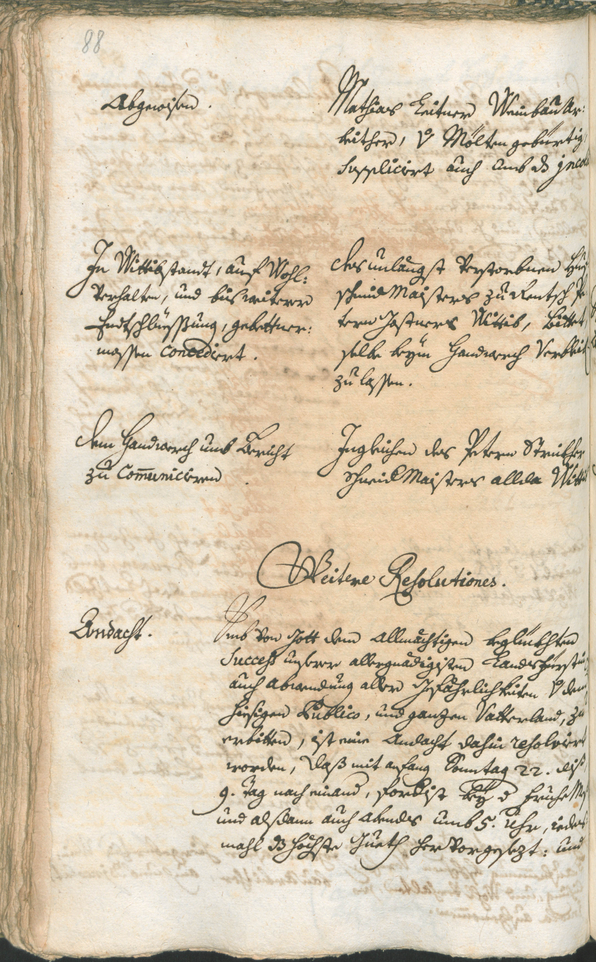 88
Abgewisen.
Mathias Leitner Weinbau Ar:
beither, V Mölten gebürtig,
Supplicirt auch umb d
In Wittibstandt, auf Wohl:
Verhalten, und bis weiterer
Entschliessung, gebettner:
massen concedirt.
des unlängst Verstorbnen
schmid Maisters zu Rentsch
tern Gasteners Wittib, bittet
selbe beym Handwerch Verbleiben
zu lassen.
dem Handwerch umb Bericht
zu Communiciren
Ingleichen des Petern
Schmid Maisters allda Wittib
Weitere Resolutiones.
Andacht.
Umb Von Gott dem Allmächtigen beglückhten
Success unserer allergnädigisten Landsfürstin
auch Abwendung aller Gefährlichkeiten V dem
hiesigen Publico, und ganzen Vatterland, zu
erbitten, ist eine Andacht dahin resolvirt
worden, das mit anfang Sonntag 22. diß
9. Tag nacheinand, forderist bey d Fruhe
und alsdann auch Abends umb 5. Uhr, iedes
mahl dz Höchste Gueth hervorgesezt: und